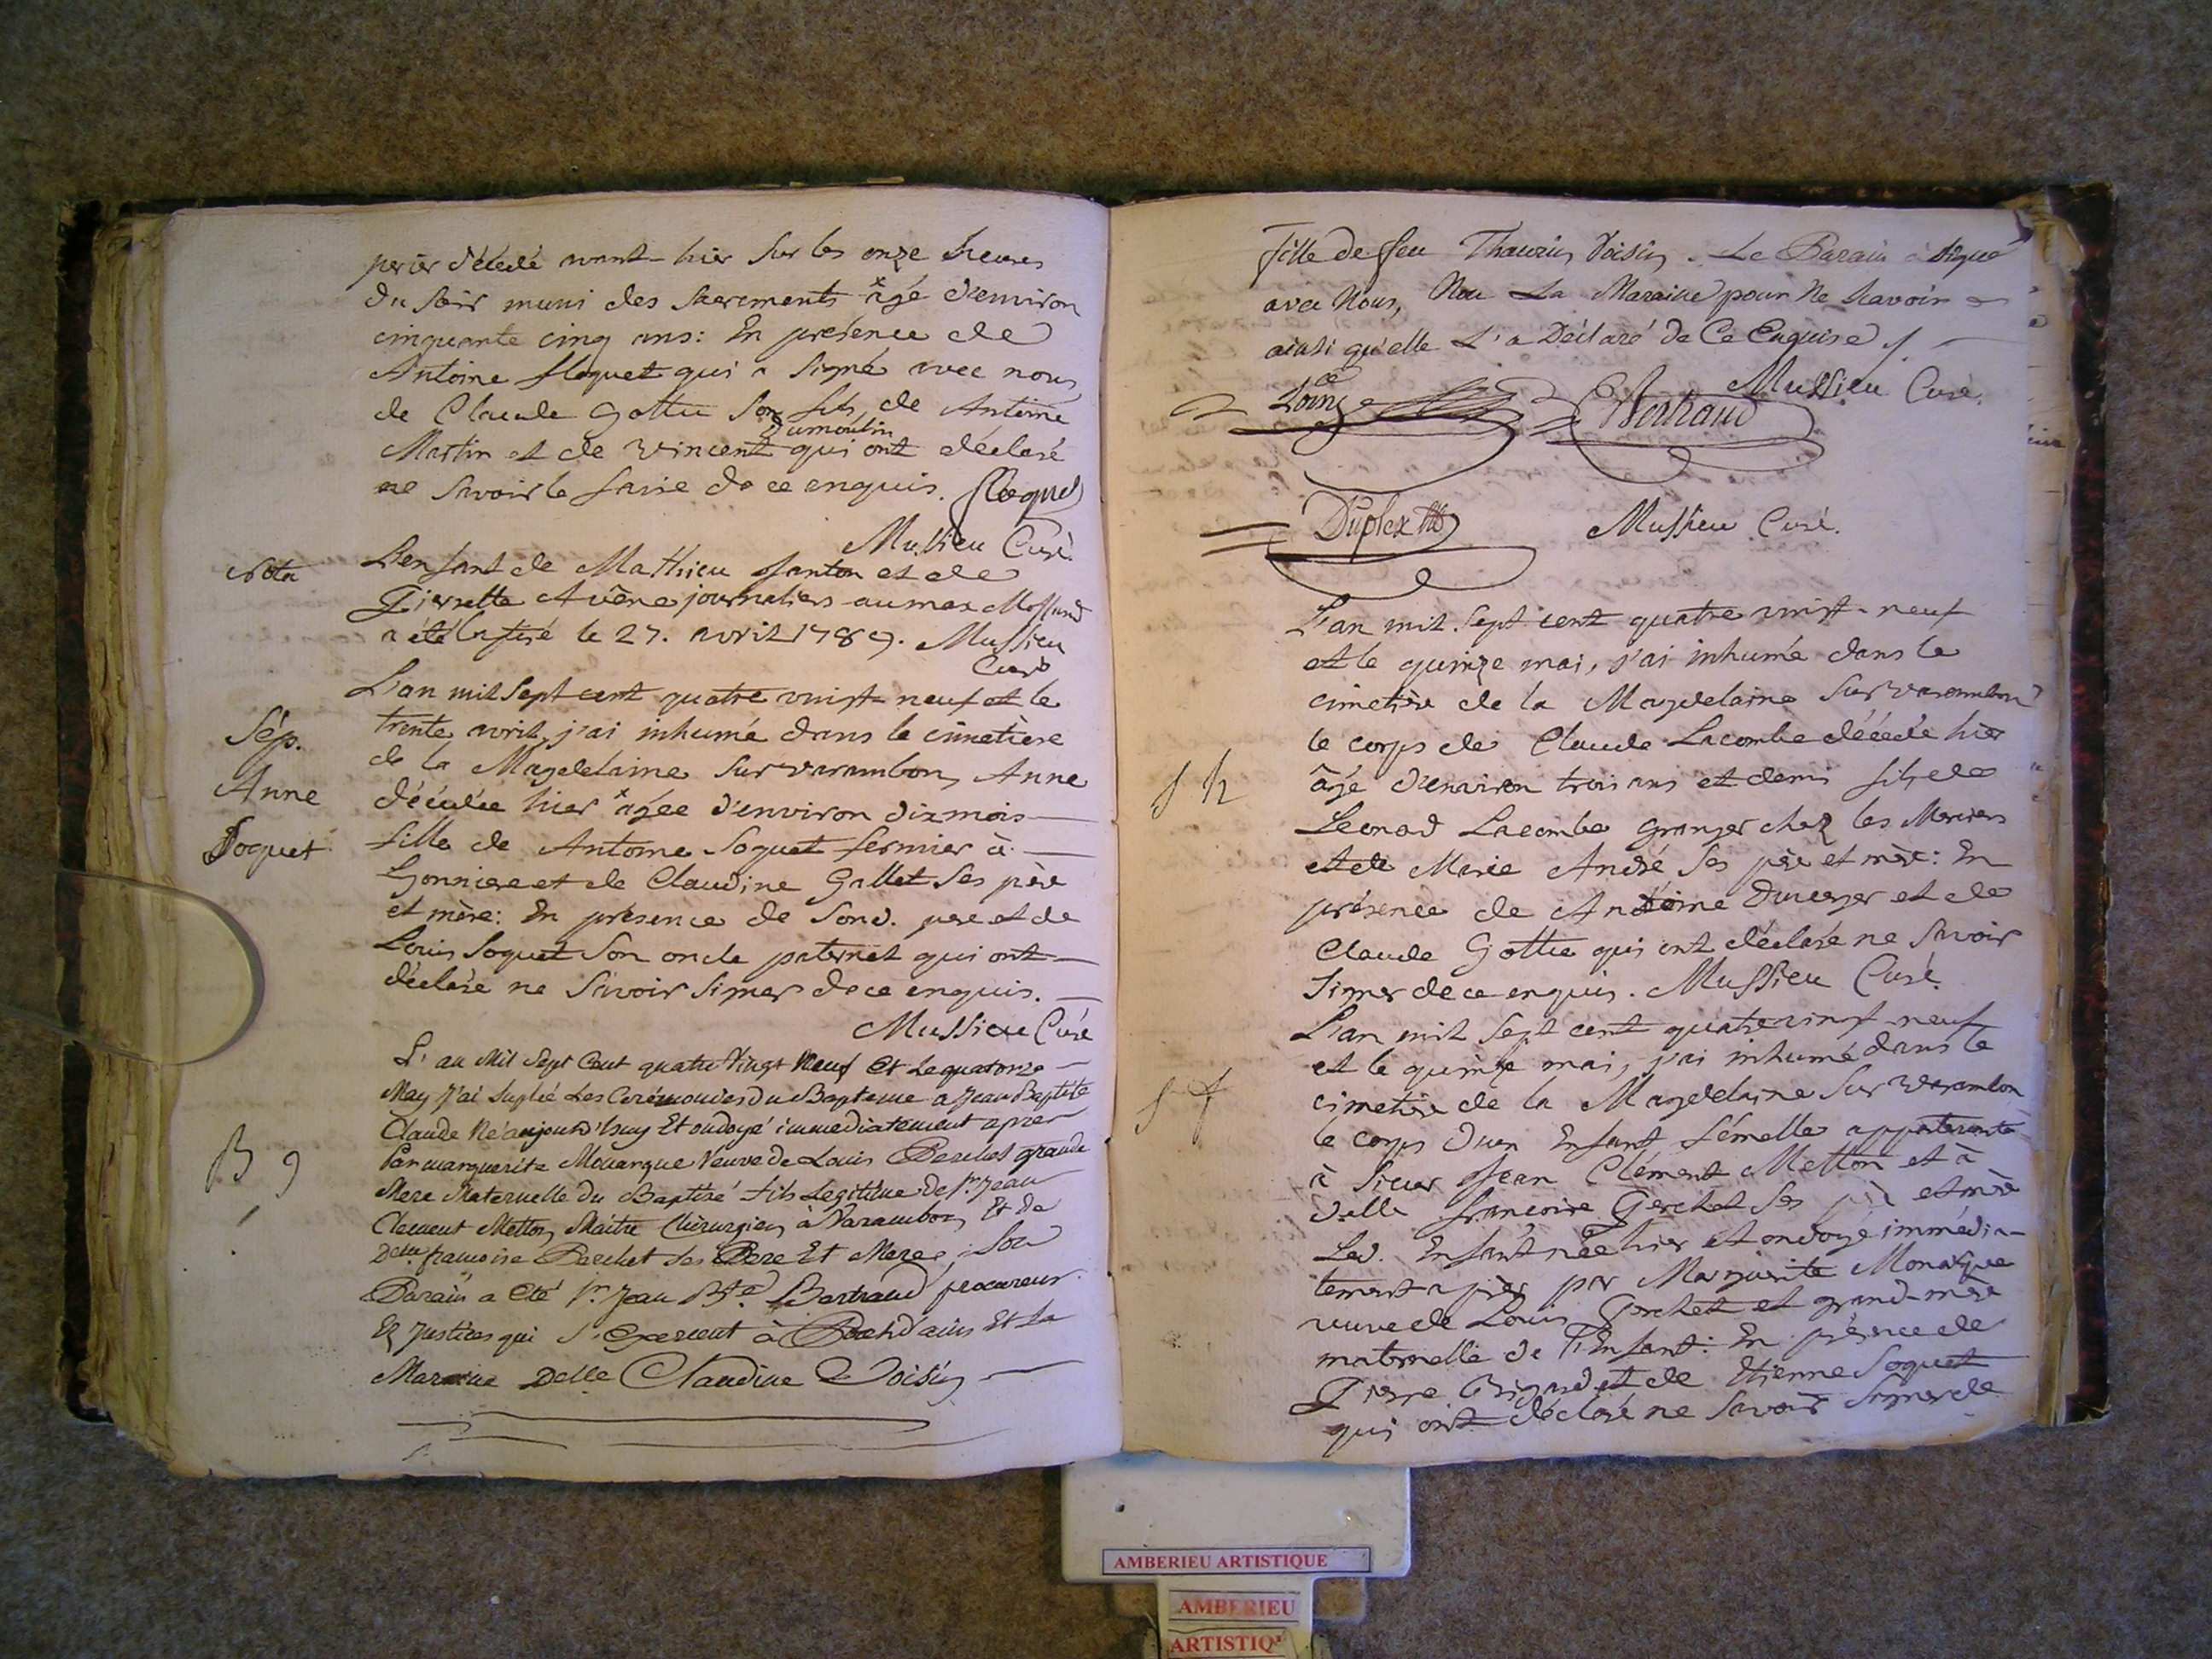 perier décédé avant-hier sur les onze heures
du soir muni des sacrements âgé d'environ
cinquante cinq ans: En présence de
Antoine floquet qui a signé avec nous
de Claude Gottu son fils, de Antoine
Dumoulin
Martin et de vincent qui ont déclaré
ne savoir le faire de ce enquis. floquet
Mussieu Curé.
Nota
L'enfant de Mathieu fanton et de
Pierrette Avêne journaliers au mas
a été baptisé le 27. avril 1789. Mussieu
Curé
L'an mil sept cent quatre vingt-neuf et le
Sép.
trente avril, j'ai inhumé dans le cimetière
de la Magdelaine sur varambon, Anne
Anne
décédée hier âgée d'environ dix mois
Soquet
fille de Antoine Soquet fermier à
Gonniere et de Claudine Gallet ses père
et mère: En présence de sond. pere et de
Louis Soquet son oncle paternel qui ont
déclaré ne savoir signer de ce enquis.
Mussieu Curé
L'an Mil Sept Cent quatre vingt Neuf Et Le quatorze
May J'ai suplée Les Cérémonies du Bapteme a Jean Baptiste
Claude Né aujourd'huy Et ondoyé immediatement apres
B 9
Par marguerite Monarque Veuve de Louis Perchet grande
Mere Maternelle du Baptisé fils Legitime de Sr. Jean
Clement Metton Maitre Chirurgien à Varambon Et de
Delle. francoise Perchet ses Pere Et Mere; Son
Parain a Eté Sr. Jean Bte. Bertrand procureur
Ez Justices qui S'Exercent à Pont d'ains Et La
Maraine Delle Claudine Voisin
fille de feu Thaurin Voisin. Le Parain a signé
avec Nous, Non La Maraine pour Ne scavoir
ainsi qu'elle L'a Déclaré de Ce Enquise
Mussieu Curé.
Bertrand
Duplex
Mussieu Curé.
L'an mil sept cent quatre vingt-neuf
et le quinze mai, j'ai inhumé dans le
cimetière de la Magdelaine sur varambon
le corps de Claude Lacombe décédé hier
S h
âgé d'environ trois ans et demi fils de
Leonad Lacombe granger chez les Merciers
et de Marie André ses père et mère: En
présence de Antoine Duverger et de
Claude Gottu qui ont déclaré ne savoir
signer de ce enquis. Mussieu Curé.
L'an mil sept cent quatre vingt-neuf
et le quinze mai, j'ai inhumé dans le
S f
cimetière de la Magdelaine sur varambon
le corps d'un Enfant fémelle appartenante
à Sieur Jean Clément Metton et à
delle francoise Gerchet ses père et mère
Led. Enfant née hier et ondoyé immédia-
tement après par Marguerite Monarque
veuve de Louis Gerchet et grand-mère
maternelle de l'Enfant: En présence de
Pierre Brigand et de Etienne Soquet
qui ont déclaré ne savoir signer de
AMBERIEU ARTISTIQUE
AMBERIEU
ARTISTIQ